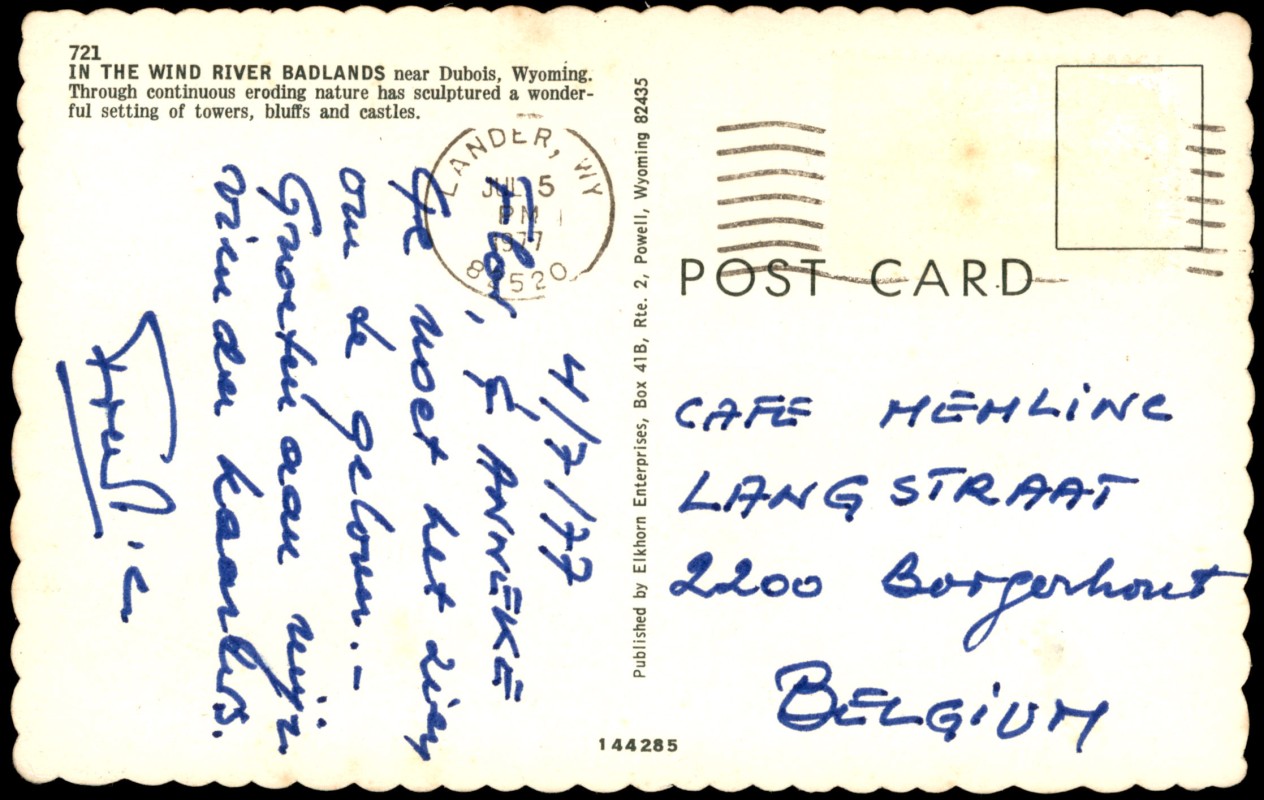 721
IN THE WIND RIVER BADLANDS near Dubois, Wyoming.
Through continuous eroding nature has sculptured a wonder-
ful setting of towers, bluffs and castles.
LANDER, WY
JUL 5
PM
1977
82520
4/7/77
Flor, & ANNEKE
Je moet het zien
om te geloven.-
Groeten aan mijn
vrienden kaarters.
Published by Elkhorn Enterprises, Box 41B, Rte. 2, Powell, Wyoming 82435
POST CARD
CAFE HEMLINC
LANGSTRAAT
2200 Borgerhout
BELGIUM
144285